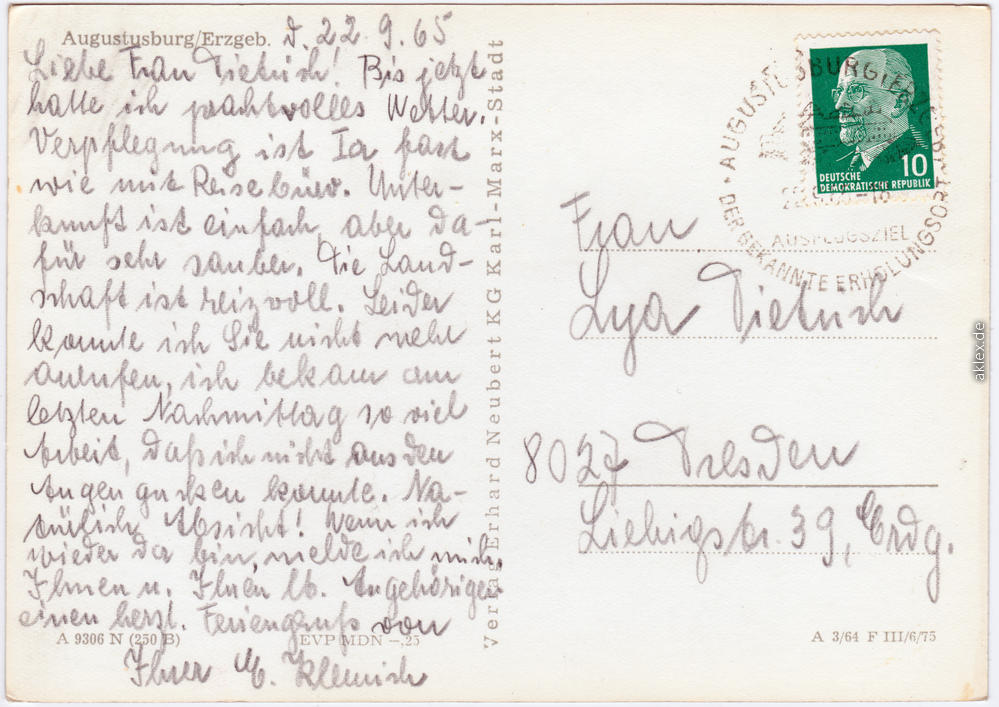 Augustusburg/Erzgeb. d. 22.9.65
Liebe Frau Dietrich! Bis jetzt
hatte ich prachtvolles Wetter.
Verpflegung ist Ia fast
wie mit Reisebüro. Unter-
kunft ist einfach, aber da-
für sehr sauber. Die Land-
schaft ist reizvoll. Leider
konnte ich Sie nicht mehr
anrufen, ich bekam am
letzten Nachmittag so viel
Arbeit, daß ich nicht aus den
Augen gucken konnte. Na-
türlich Absicht! Wenn ich
wieder da bin, melde ich mich.
Ihnen u. Ihren lb. Angehörigen
einen herzl. Feriengruß von
Ihrer E. Klemich
A 9306 N (250 B)
EVP MDN –,25
Verlag Erhard Neubert KG Karl-Marx-Stadt
AUGUSTUSBURG (ERZGEB)
DER BEKANNTE ERHOLUNGSORT
AUSFLUGSZIEL
10
DEUTSCHE
DEMOKRATISCHE REPUBLIK
Frau
Lya Dietrich
8027 Dresden
Liebigstr. 39, Erdg.
A 3/64 F III/6/75
aklex.de